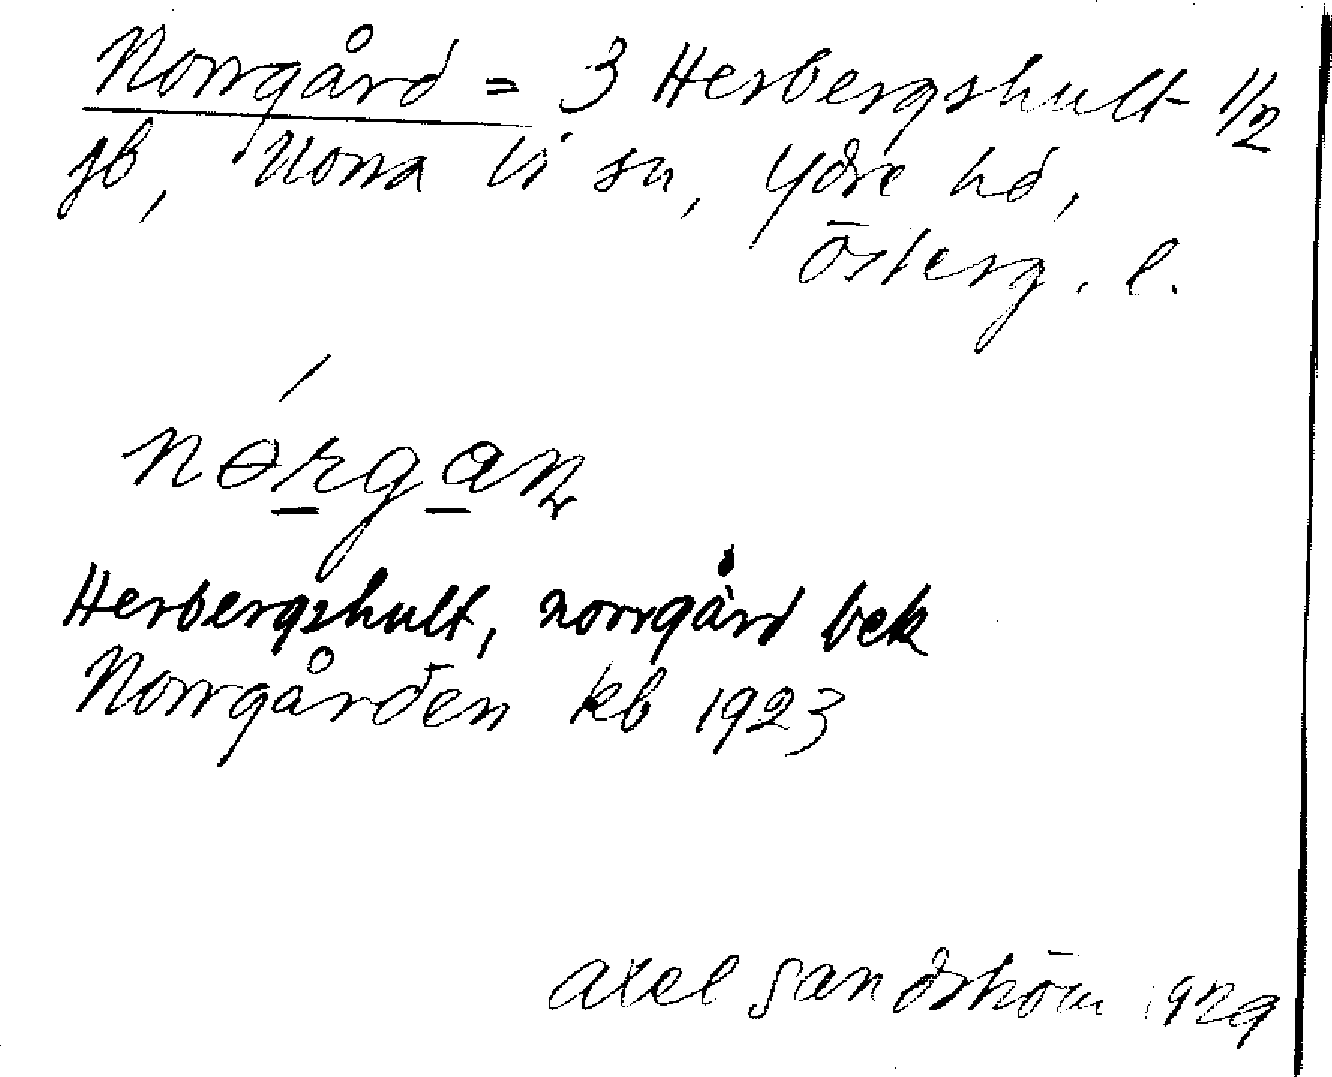 Norrgård = 3 Herbergshult 1/2
jb, Norra Vi sn, Ydre hd,
Österg. l.
nɵ́rgaɳ
Herbergshult, norrgård bek
Norrgården kb 1923
Axel Sandström 1929